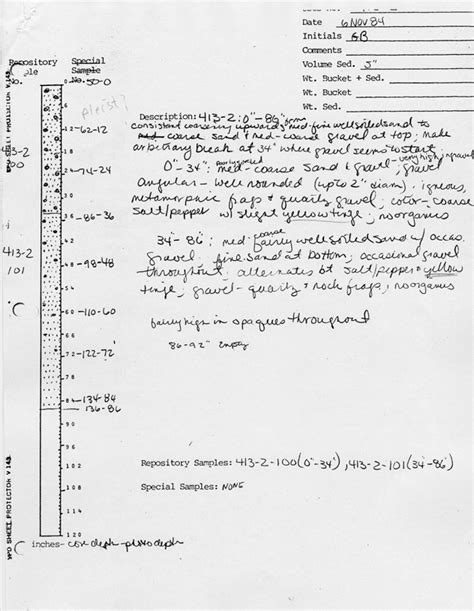 Date 6 NOV 84
Initials GB
Comments
Volume Sed. 5"
Wt. Bucket + Sed.
Wt. Bucket
Wt. Sed.
Repository Special
Sample
No. No. 50-0
pleist?
0
12-62-12
24-74-24
36-86-36
48-98-48
60-110-60
72-122-72
84-134-84
136-86
96
102
114
120
413-2
100
413-2
101
Description: 413-2: 0"-86"
consistent coarsening upwards med-fine well sorted sand to
coarse sand & med-coarse gravel at top; make
arbitrary break at 34" where gravel seems to start
0"-34": med-coarse sand & gravel - very high in gravel
angular - well rounded (up to 2" diam), igneous,
metamorphic frags & quartz gravel; color-coarse
salt/pepper w/ slight yellow tinge; no organics
34-86": med coarse fairly well sorted sand w/ occas.
gravel; fine sand at bottom; occasional gravel
throughout; alternates bt salt/pepper & yellow
tinge; gravel-quartz & rock frags; no organics
fairly high in opaques throughout
86-92" empty
Repository Samples: 413-2-100(0"-34"), 413-2-101(34"-86")
Special Samples: NONE
inches- core depth - photo depth
VPD SHEET PROTECTOR V 143